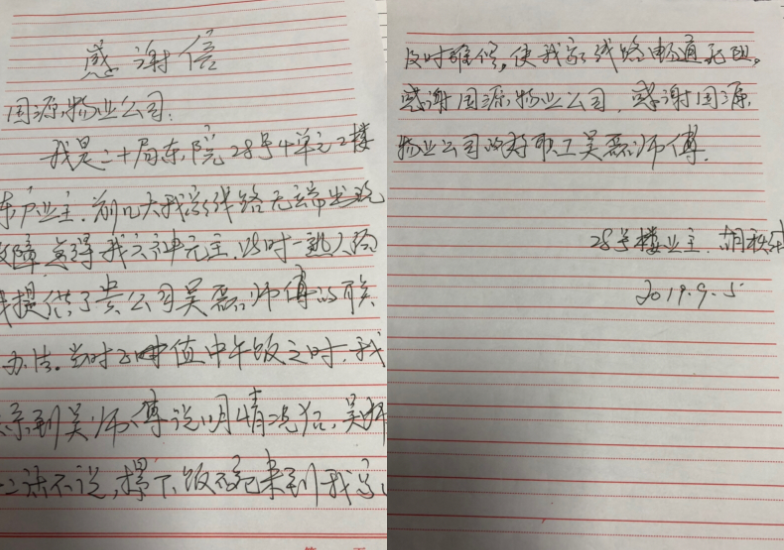 感谢信
国源物业公司:
我是二十局东院28号4单元2楼
东户业主.前几天我家线路无端出现
故障,急得我六神无主.此时一熟人给
我提供了贵公司吴磊师傅的联
办法。当时正值中午饭之时.我
系到吴师傅说明情况后,吴师
二话不说,撂下饭碗来到我家
及时维修,使我家线路畅通无阻。
感谢国源物业公司.感谢国源
物业公司的好职工吴磊师傅.
28号楼业主.胡秋
2019.9.5